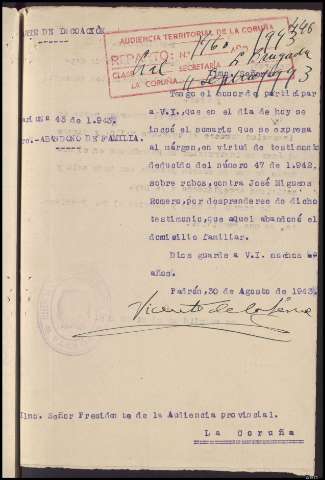 AUDIENCIA TERRITORIAL DE LA CORUÑA
REPARTO: Nº
SECRETARÍA
LA CORUÑA
Tengo el honor de participar
a V.I. que en el dia de hoy se
incoó el sumario que se expresa
al márgen, en virtud de testimonio
deducido del número 47 de 1.942,
sobre robos, contra José Miguens
Romero, por desprenderse de dicho
testimonio, que aquel abandonó el
domicilio familiar.
43 de 1.943.
-ABANDONO DE FAMILIA.
Dios guarde a V.I. muchos
años.
Padrón, 30 de Agosto de 1943.
Vicente de la
Ilmo. Señor Presidente de la Audiencia provincial.
La Coruña